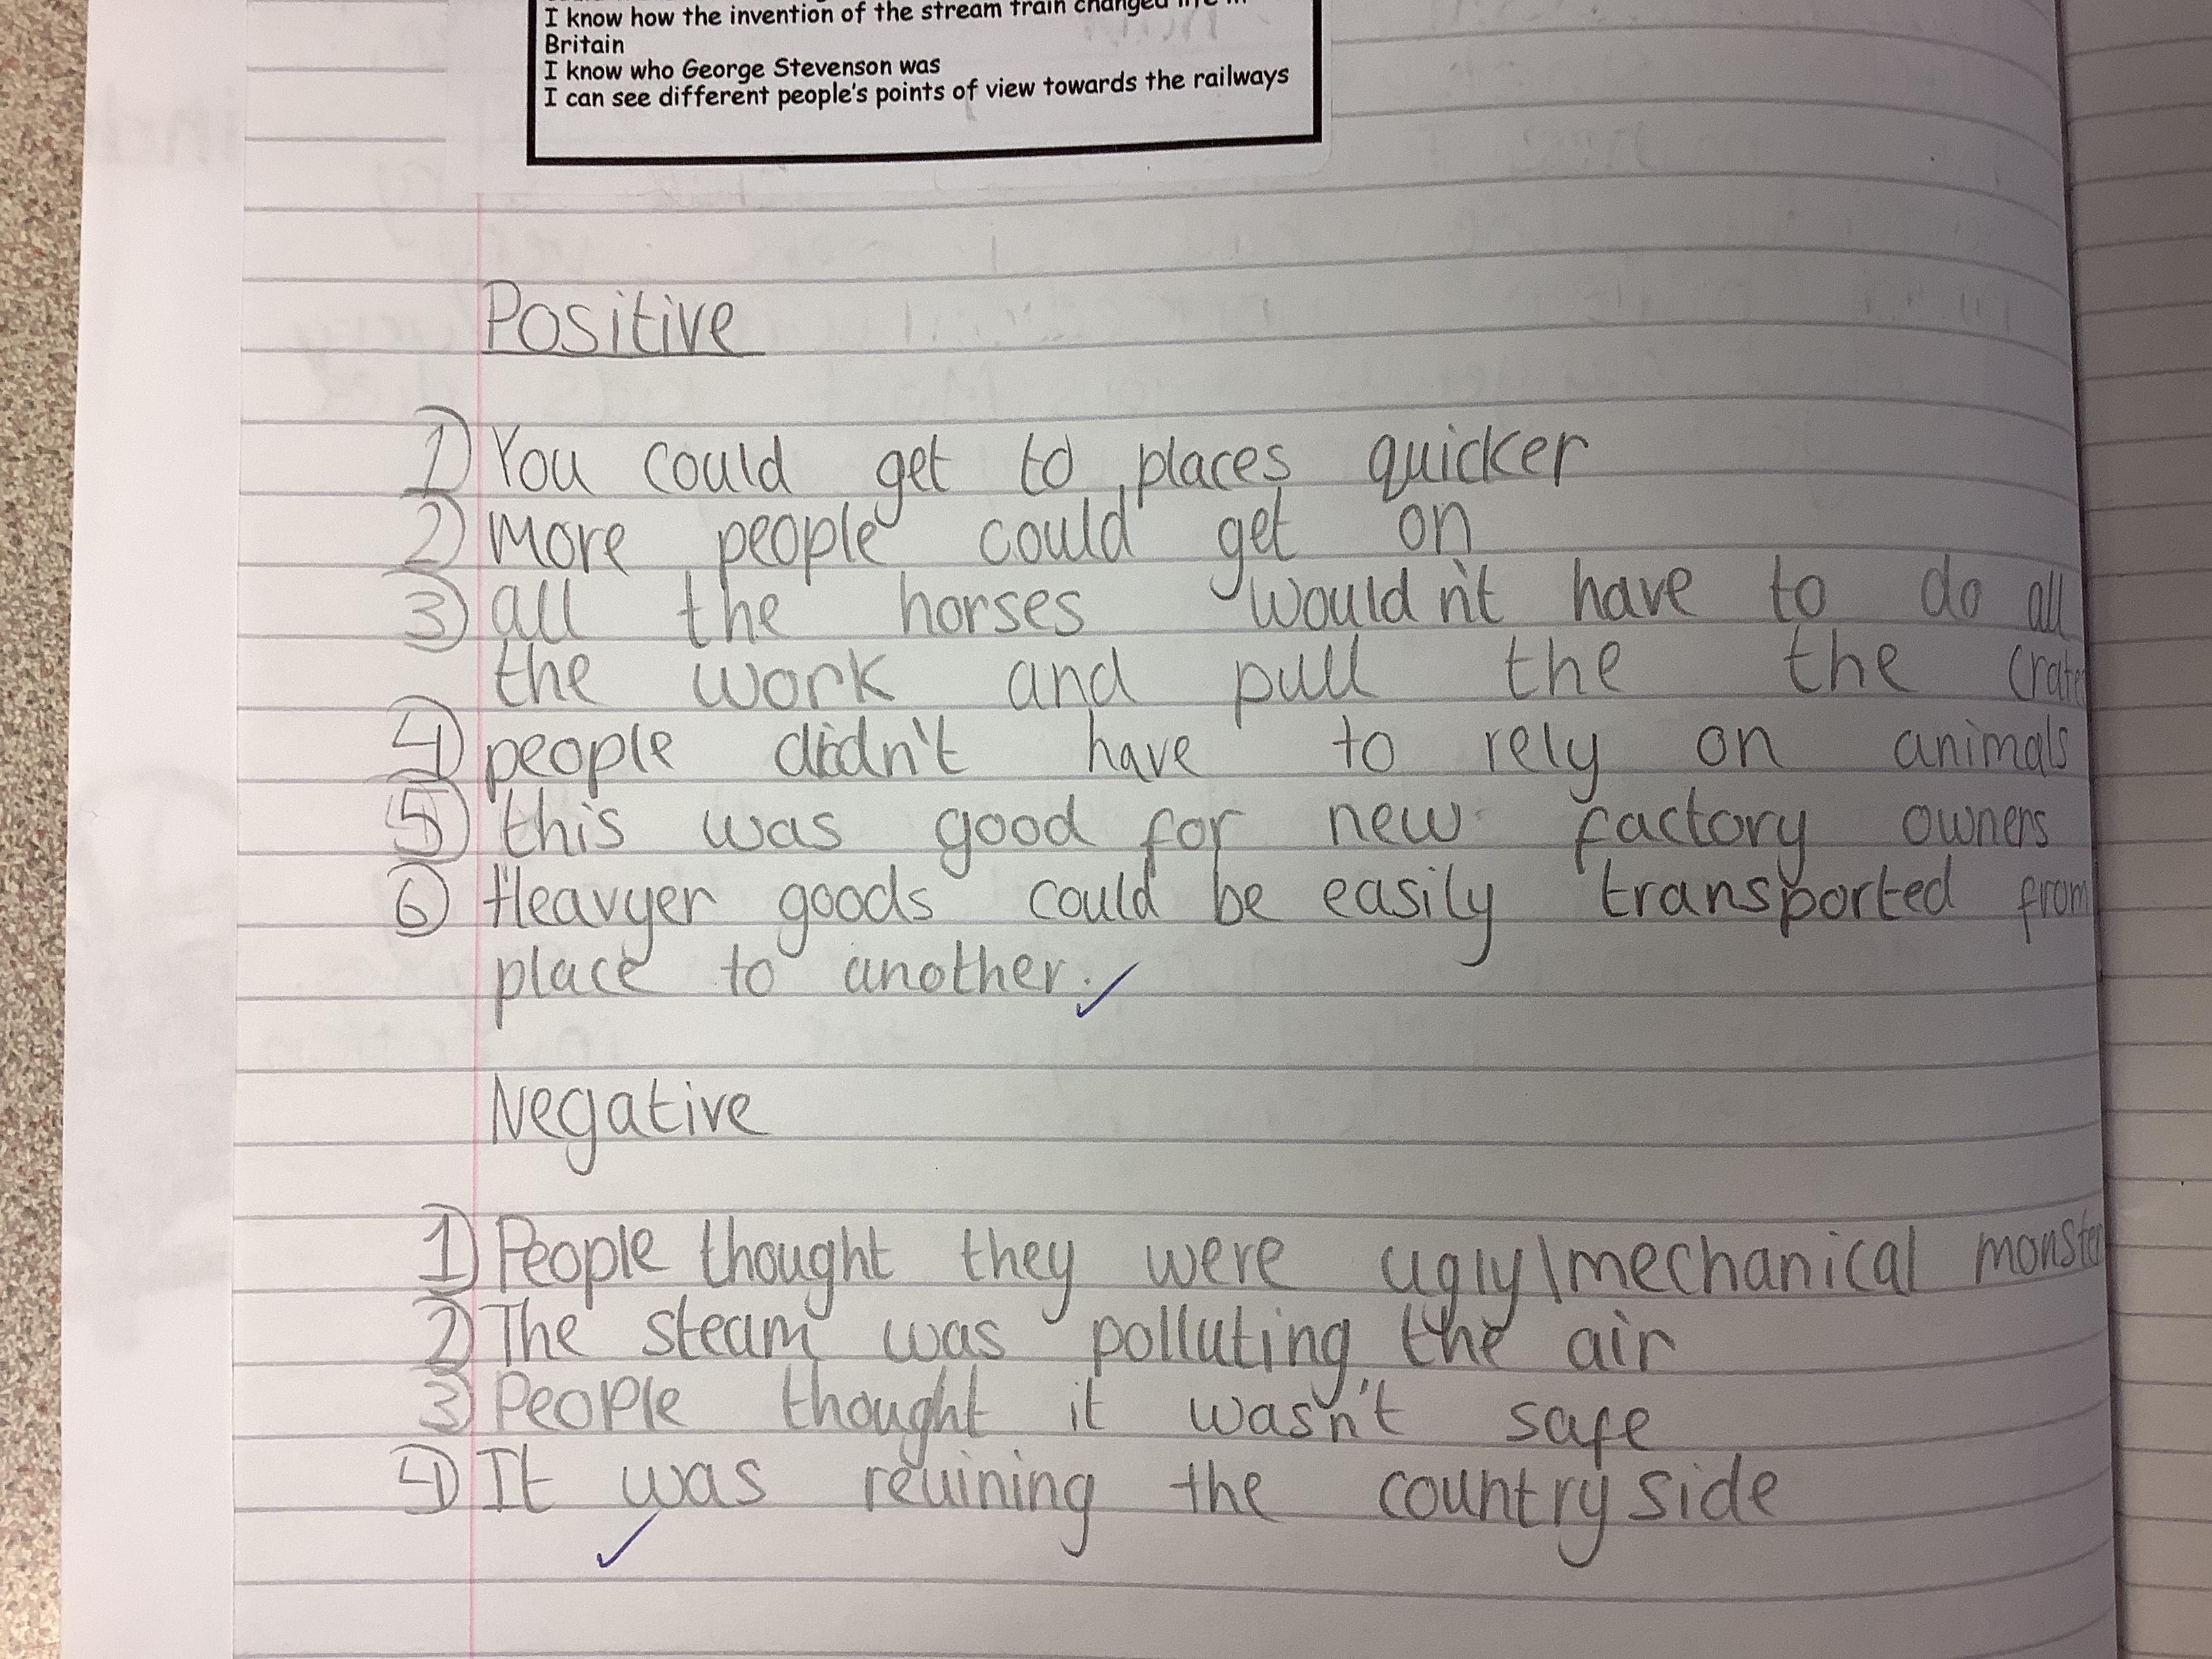 I know how the invention of the stream train changed life in
Britain
I know who George Stevenson was
I can see different people's points of view towards the railways
Positive
1 You could get to places quicker
2 More people could get on
3 all the horses would n't have to do all
the work and pull the the crates
4 people didn't have to rely on animals
5 this was good for new factory owners
6 Heavyer goods could be easily transported from
place to another.
Negative
1 People thought they were ugly\mechanical monster
2 The steam was polluting the air
3 People thought it wasn't safe
4 It was reuining the country side